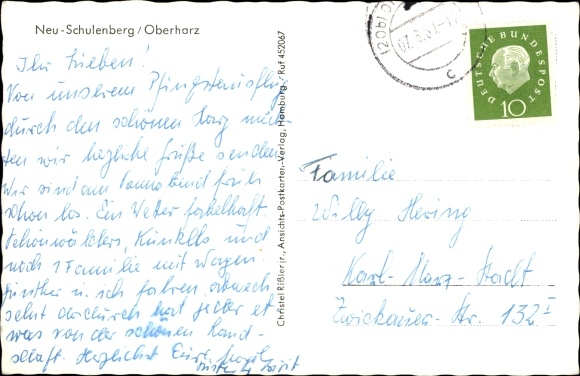 Neu-Schulenberg/Oberharz
Ihr Lieben!
Von unserem Pfingstausflug
durch den schönen Harz möch,
ten wir herzliche Grüße senden.
Wir sind am Sonnabend früh
schon los. Ein Wetter fabelhaft.
Schönwälders, Künkels und
noch 1 Familie mit Wagen.
Günther u. ich fahren abwech
selnd dadurch hat jeder et
was von der schönen Land-
schaft. Herzlichst Eure
Christel Rißler jr., Ansichts-Postkarten-Verlag, Hamburg · Ruf 452067
(20b)
DEUTSCHE BUNDESPOST
10
c
Familie
Willy Hering
Karl-Marx-Stadt
Zwickauer-Str. 132 I